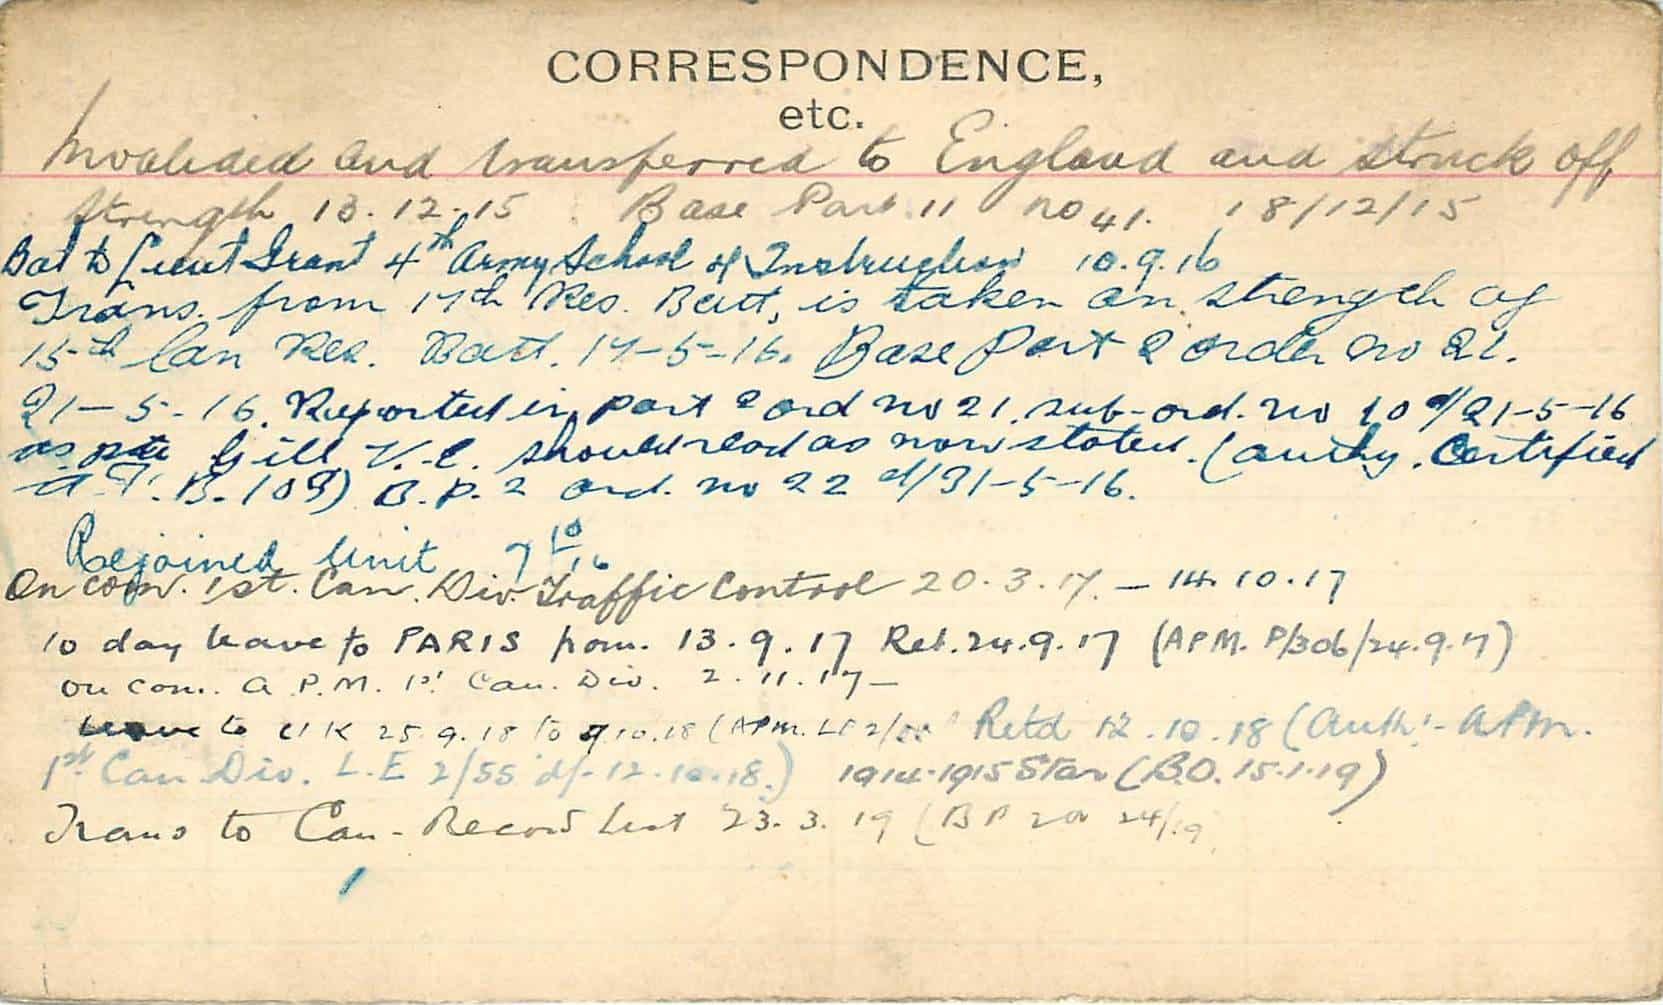 CORRESPONDENCE,
etc.
Invalided and transferred to England and struck off
strength 13.12.15 Base Part 11 no 41. 18/12/15
Bat to Lieut Grant 4th Army School of Instruction 10.9.16
Trans. from 17th Res. Batt, is taken on strength of
15th Can Res. Batt. 17-5-16. Base Part 2 order no 21.
21-5-16. Reported in part 2 ord no 21. sub-ord. no 10 d/21-5-16
as pte Gill V.C. should read as now stated. (authy. Certified
A.F. B. 103) B.P. 2 ord. no 22 d/31-5-16.
Rejoined Unit 7 10/16
On com. 1st. Can. Div. Traffic Control 20.3.17. - 14.10.17
10 day leave to PARIS from. 13.9.17 Ret. 24.9.17 (APM. P/306/24.9.17)
on com. A.P.M. 1st Can. Div. 2.11.17-
Leave to UK 25.9.18 to 9.10.18 (APM. Retd 12.10.18 (Auth:- APM.
1st Can Div. L.E 2/55 d/- 12.10.18.) 1914-1915 Star (B.O. 15.1.19)
Trans to Can - Record List 23.3.19 (BP 2 24/19